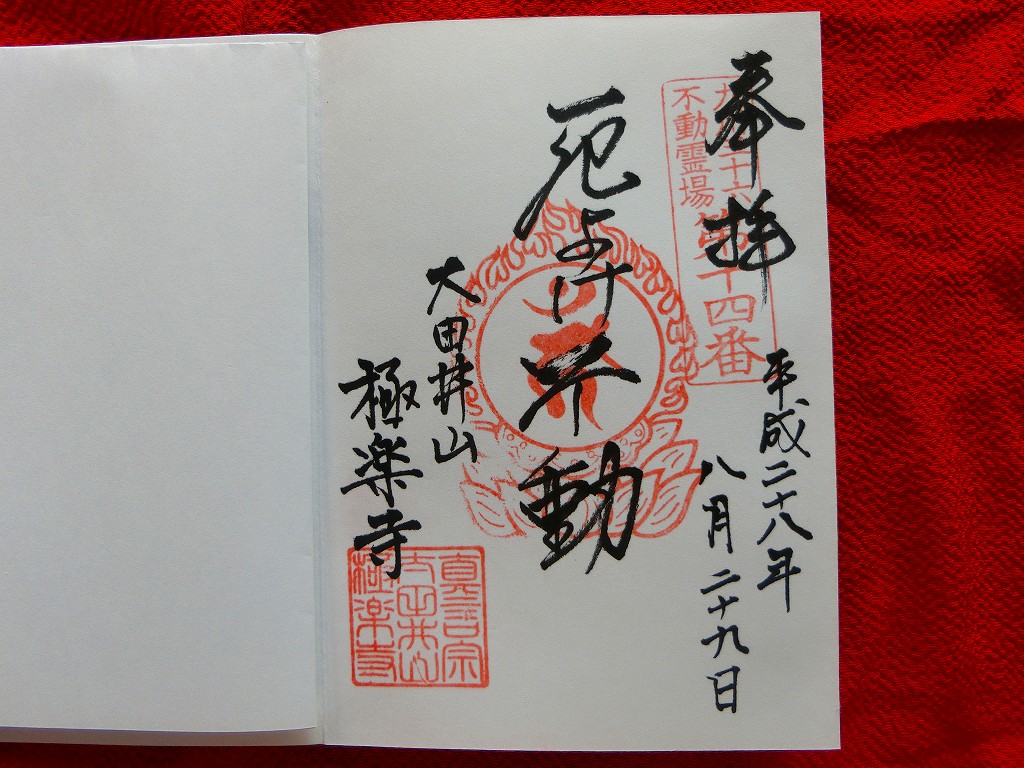 奉拝
平成二十八年
八月二十九日
九州三十六
不動霊場
第十四番
厄よけ不動
大田井山
極楽寺
真言宗
大田井山
極楽寺